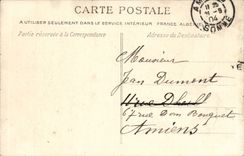 CARTE POSTALE
A UTILISER SEULEMENT DANS LE SERVICE INTÉRIEUR
Partie réservée à la Correspondance
Adresse du Destinataire
04
SOMME
Monsieur
Jean Dumont
67 rue Dom Bouquet
Amiens